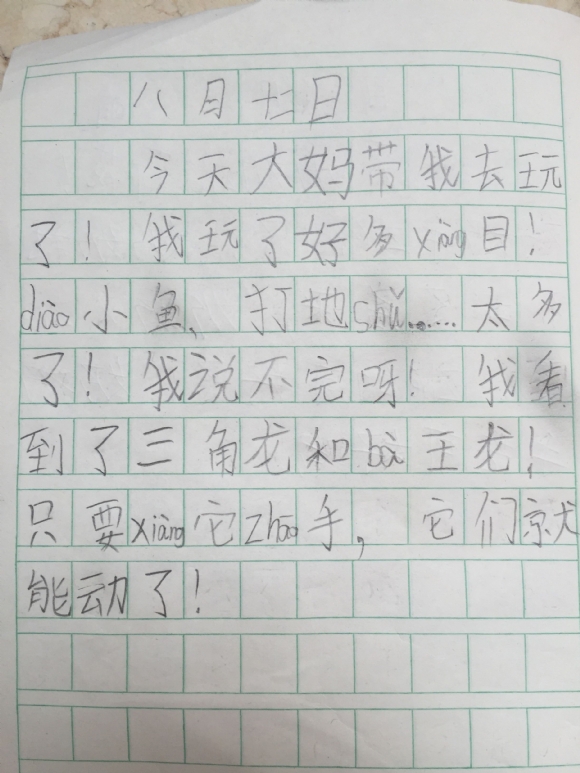 八月十二日
今天大妈带我去玩
了！我玩了好多xiàng目！
diào小鱼、打地shǔ……太多
了！我说不完呀！我看
到了三角龙和bà王龙！
只要xiàng它zhāo手，它们就
能动了！